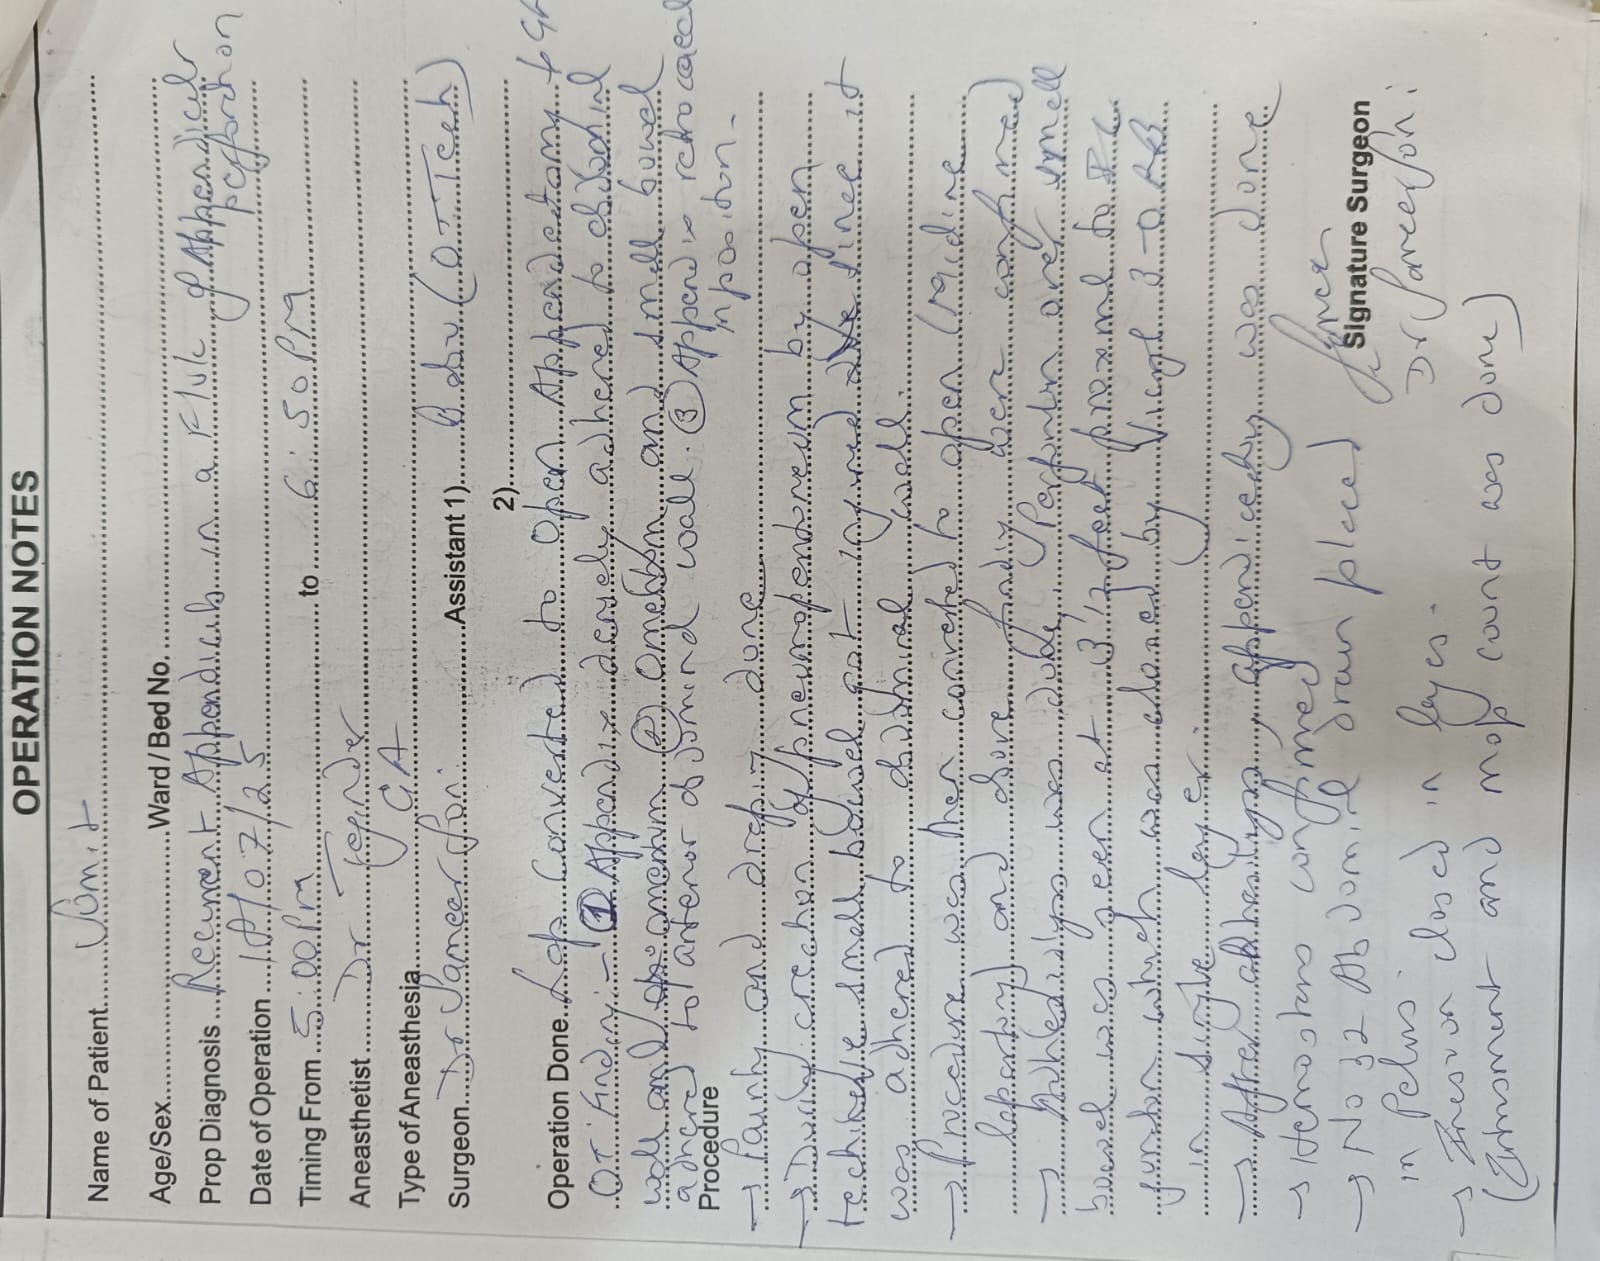 OPERATION NOTES
Name of Patient.....Sumit
Age/Sex..........Ward / Bed No..........
Prop Diagnosis...Recurrent Appendicitis in a F/U/C of Appendicular
perforation
Date of Operation...18/07/25
Timing From...5:00 Pm.....to.....6:50 Pm
Aneasthetist.....Dr Tejinder
Type of Aneasthesia.....GA
Surgeon...Dr Sameer.....Assistant 1)...(OT Tech)
2)..........
Operation Done...Lap Converted to open Appendectomy + GA
OT finding:- ① Appendix densely adhered to abdominal
wall and omentum ② Omentum and small bowel
adhered to anterior abdominal wall. ③ Appendix retrocaecal
in position.
Procedure
→ Painting and draping done
→ During creation of pneumoperitoneum by open
technique small bowel got injured since it
was adhered to abdominal wall.
→ Procedure was then converted to open (midline
laparotomy) and above finding were confirmed
→ Adhesiolysis was done, Perforation over small
bowel was seen at 3 1/2 feet proximal to IC
junction which was closed by Vicryl 3-0 RB
in single layer.
→ After adhesiolysis, appendicectomy was done
→ Hemostasis confirmed
→ No 32 Abdominal drain placed
in Pelvis.
→ Incision closed in layers.
(Instrument and mop count was done)
Signature Surgeon
Dr Sameer